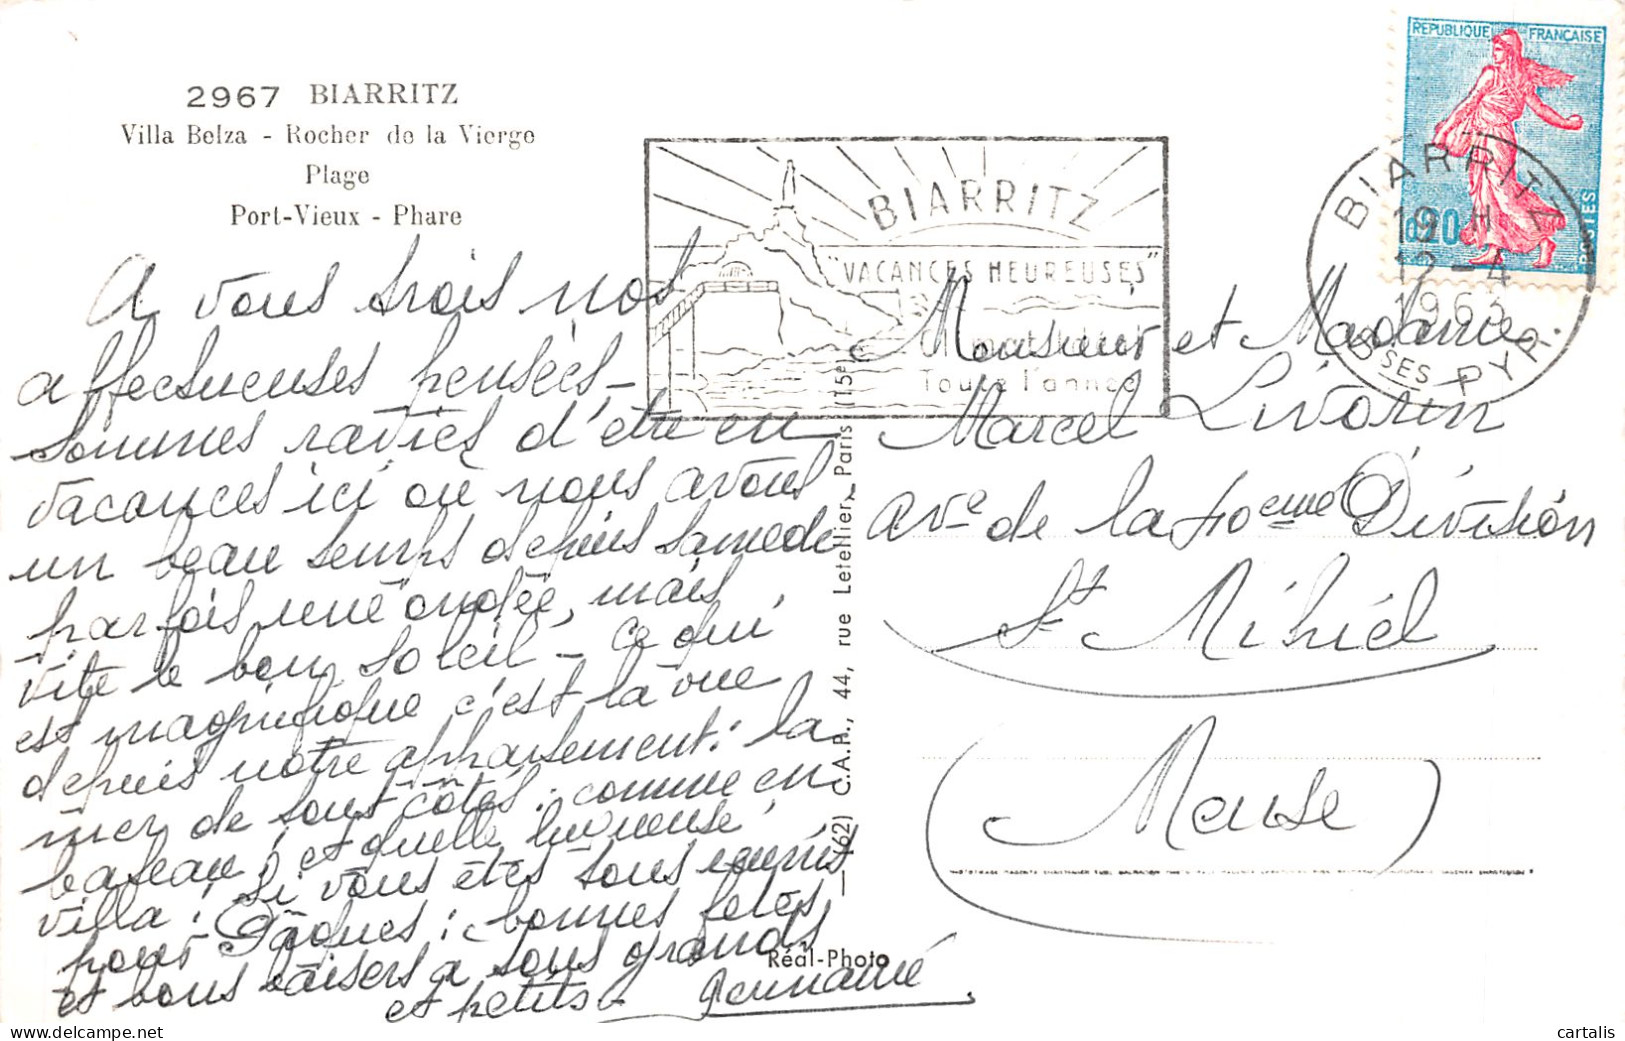 2967 BIARRITZ
Villa Belza - Rocher de la Vierge
Plage
Port-Vieux - Phare
REPUBLIQUE FRANÇAISE
0.20
POSTES
BIARRITZ
19 H
12-4
1963
BSES PYR.
BIARRITZ
"VACANCES HEUREUSES"
Toute l'année
A vous trois nos
affectueuses pensées,
sommes ravies d'être en
vacances ici où nous avons
un beau temps depuis samedi
parfois une ondée, mais
vite le bon soleil - ce qui
est magnifique c'est la vue
depuis notre appartement: la
mer de tout côtés: comme en
bateau! et quelle lumineuse
villa! Si vous êtes tous réunis
pour Pâques: bonnes fêtes
et bons baisers à tous grands
et petits - Germaine
Monsieur et Madame
Marcel Livorin
Ave de la 40eme Division
St Mihiel
(Meuse)
— (62) C.A.P., 44, rue Letellier, Paris (15e)
Réal-Photo
delcampe.net
cartalis